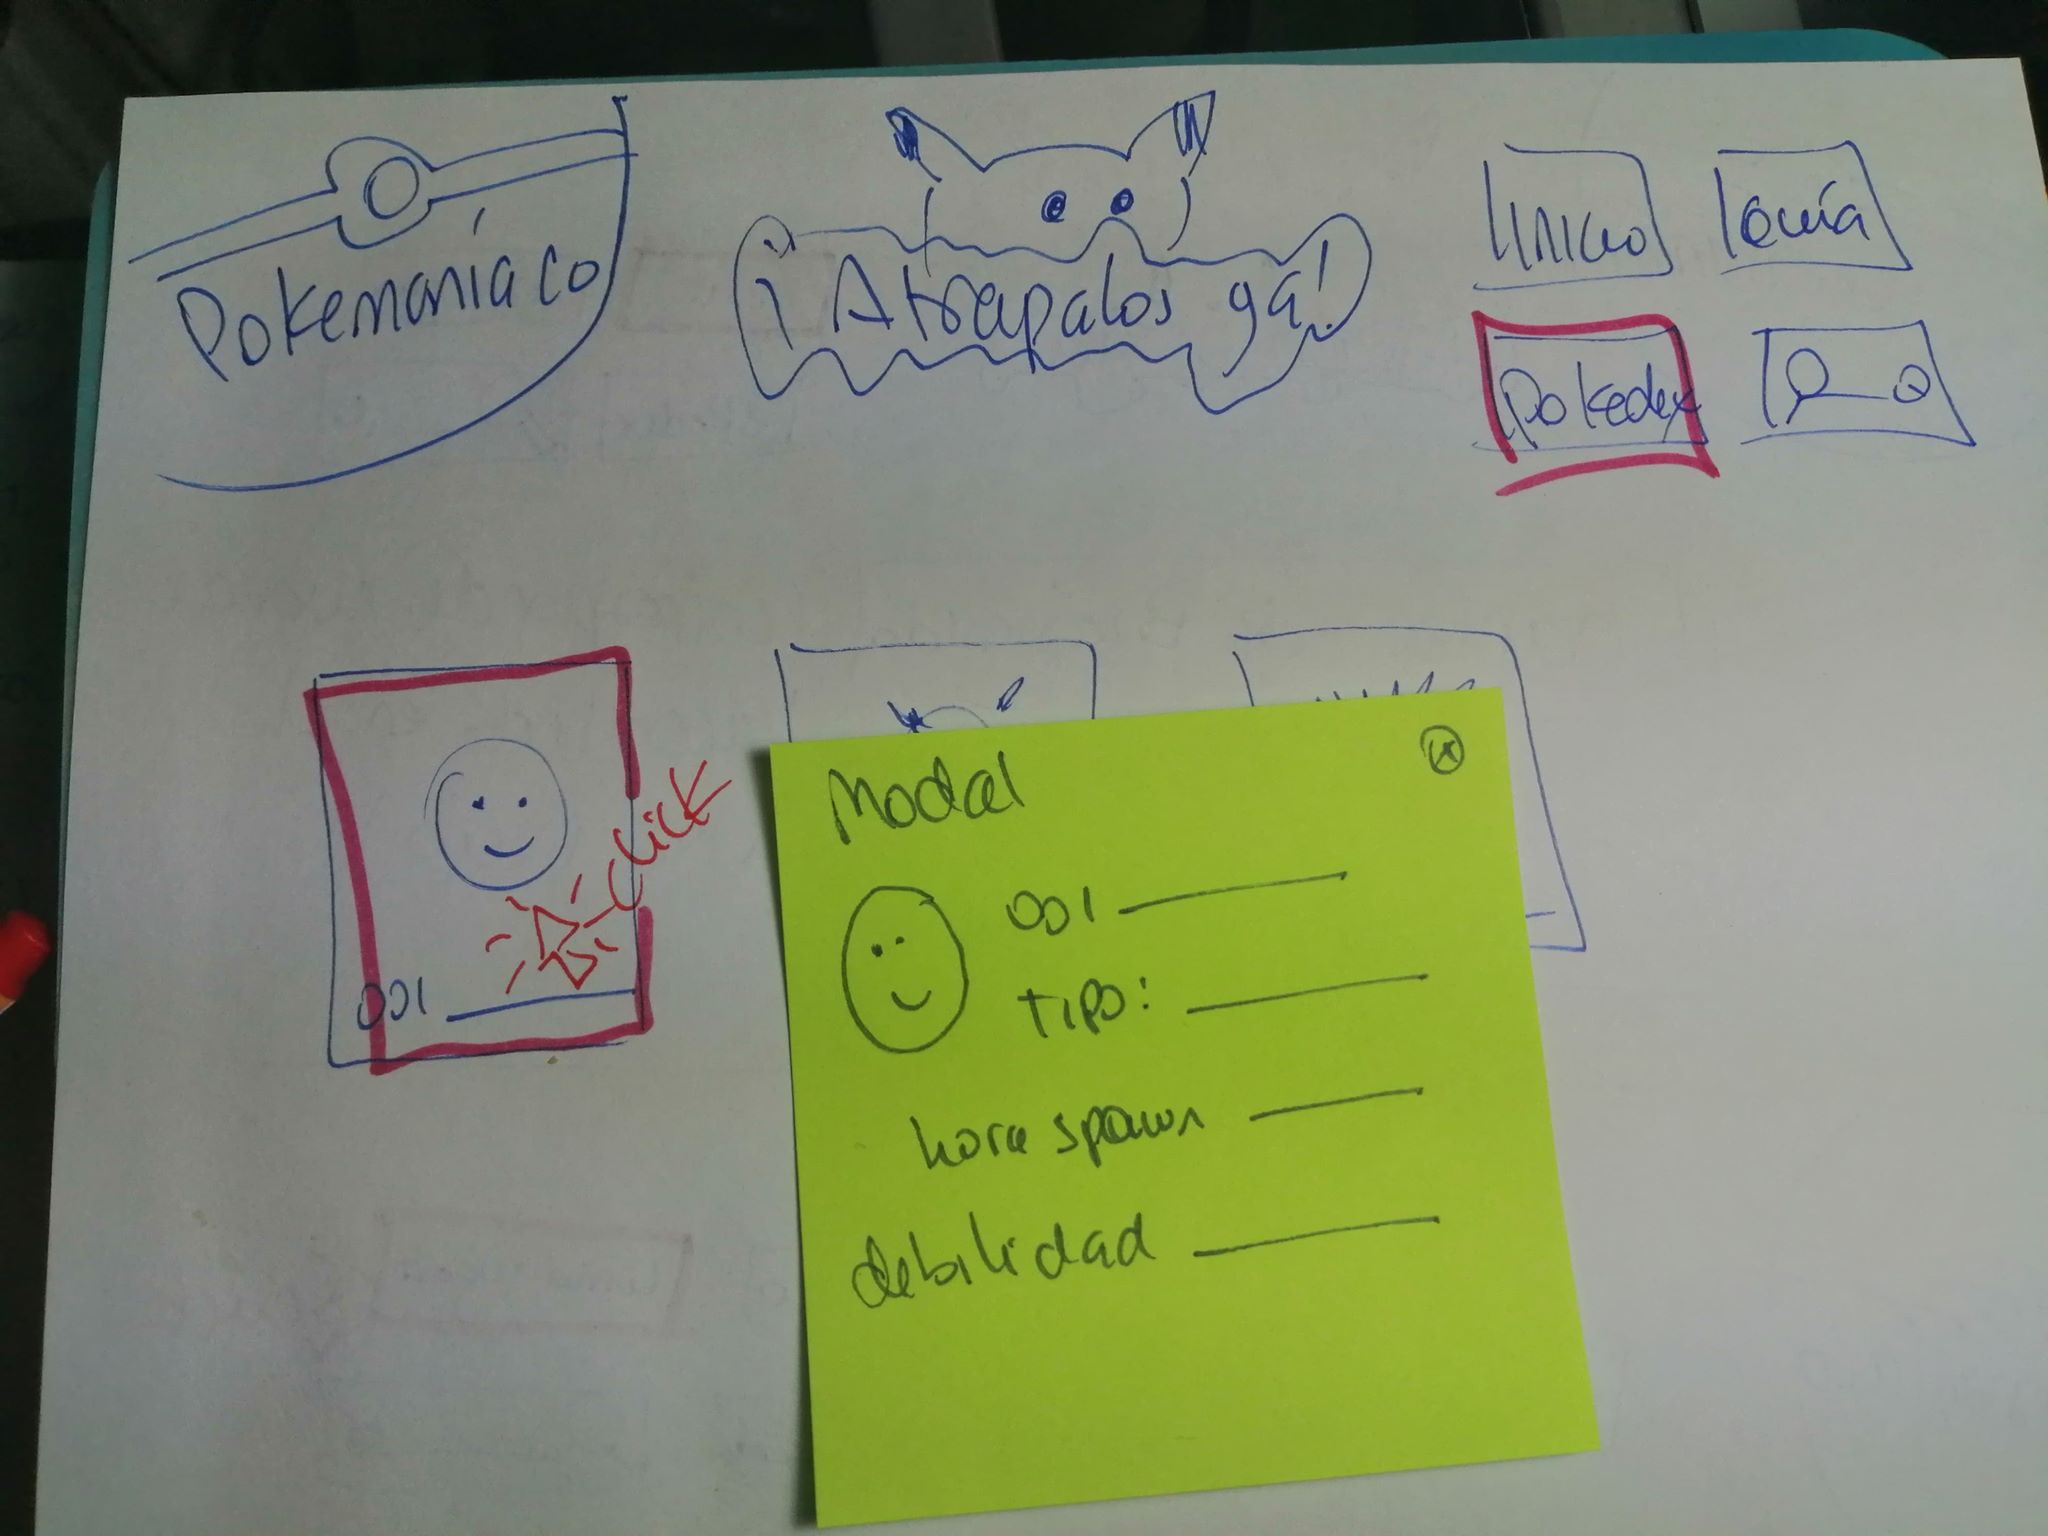 Pokemaníaco
¡Atrapalos ya!
Inicio
Guía
Pokedex
001
Click
Modal
x
001
Tipo:
hora spawn
debilidad